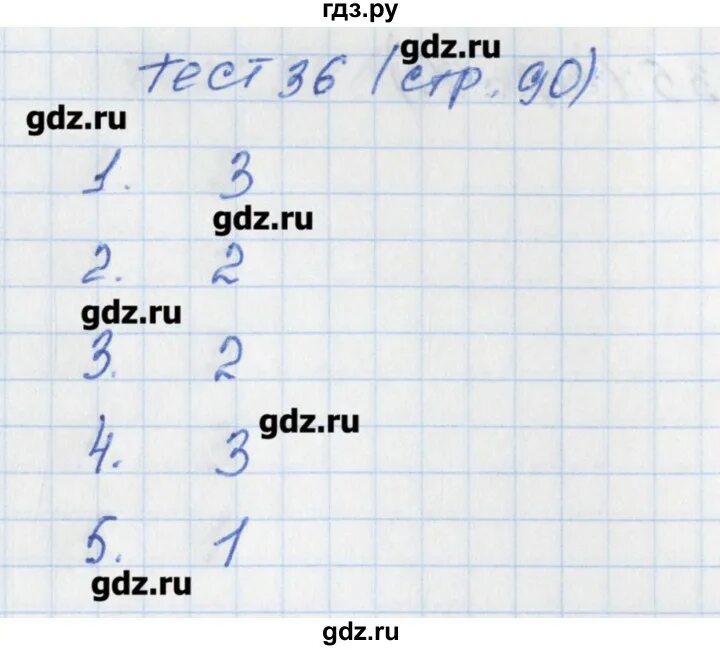 гдз.ру
gdz.ru
тест 36 (стр. 90)
gdz.ru
1. 3
gdz.ru
2. 2
gdz.ru
3. 2
gdz.ru
4. 3
5. 1
gdz.ru
gdz.ru